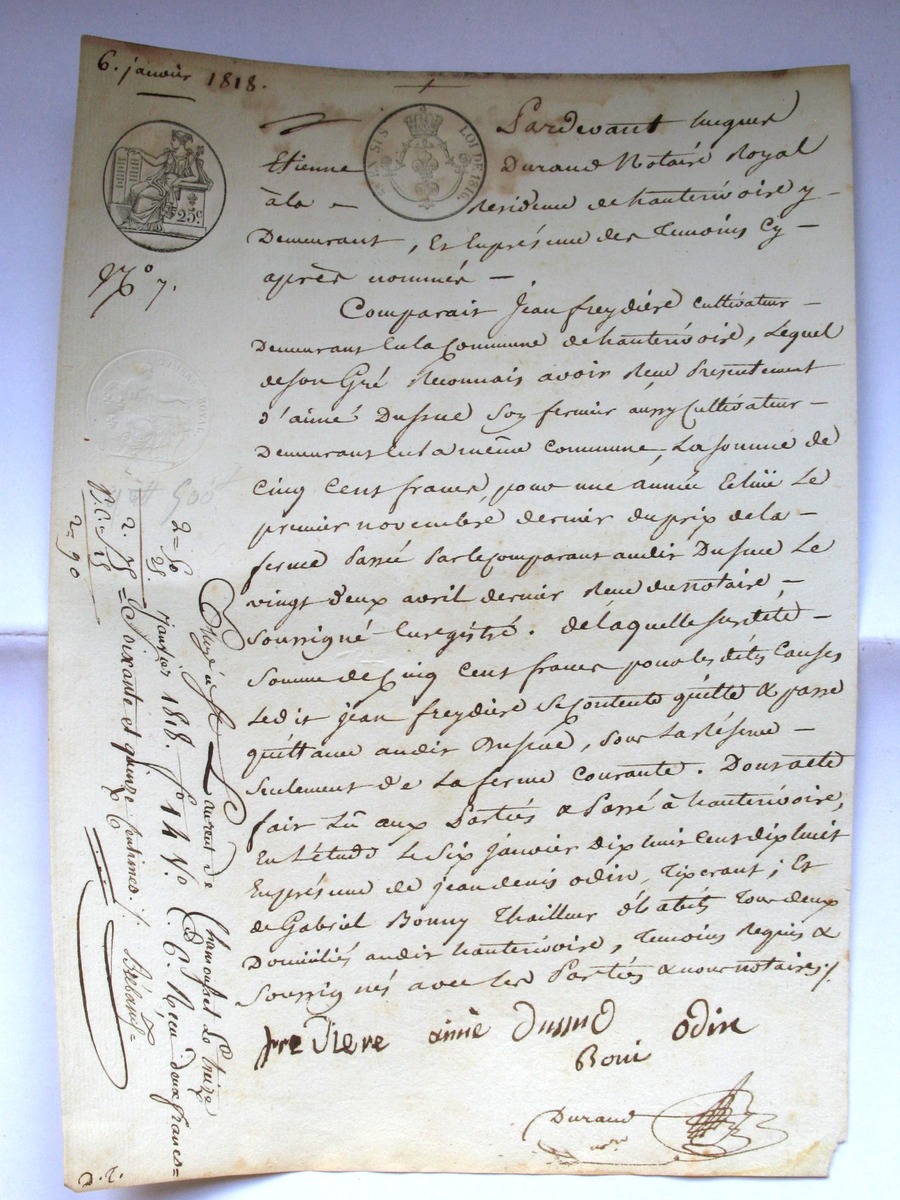 6. janvier 1818.
25c.
LOI DE 1816.
N.º 7.
Pardevant Jacques
Etienne Durand Notaire Royal
à la Résidence de hauterivoire y
Demeurant, Et En présence des Temoins Cy
après nommés
Comparait jean freydière cultivateur
Demeurant En la Commune de hauterivoire, Lequel
de son Gré Reconnait avoir Reçu Présentement
d'aimé Dussuc Son fermier aussy Cultivateur
Demeurant En la même Commune, La Somme de
Cinq Cent francs, pour une année Echüe Le
premier novembre dernier du prix de la
ferme Passée Par le Comparant audit Dussuc Le
vingt deux avril dernier Reçu du notaire
Soussigné Enregistré. de laquelle susdite
Somme de Cinq Cent francs pour les dites Causes
Ledit jean freydière Se Contente quitte & passe
quittance audit Dussuc, Sous La Réserve
Seulement de La ferme Courante. Dont acte
fait Lû aux Parties & Passé à hauterivoire,
En L'étude Le Six janvier Dix huit Cent dix huit
En présence de jean denis odin, Tixerant; Et
de Gabriel Bonny Thailleur d'habits Tous deux
Domiciliés audit hauterivoire, Temoins Requis &
Soussignés avec Les Parties & nous notaire./.
freidiere aimé Dussuc odin
Boni
Durand
nore
Enrgé à St Laurent de Chamousset Le Treize
janvier 1818. Fo 14 Vo C. 6. Reçu deux francs
Soixante et quinze Centimes./.
2 = 50
25
2. 75
15
2 = 90